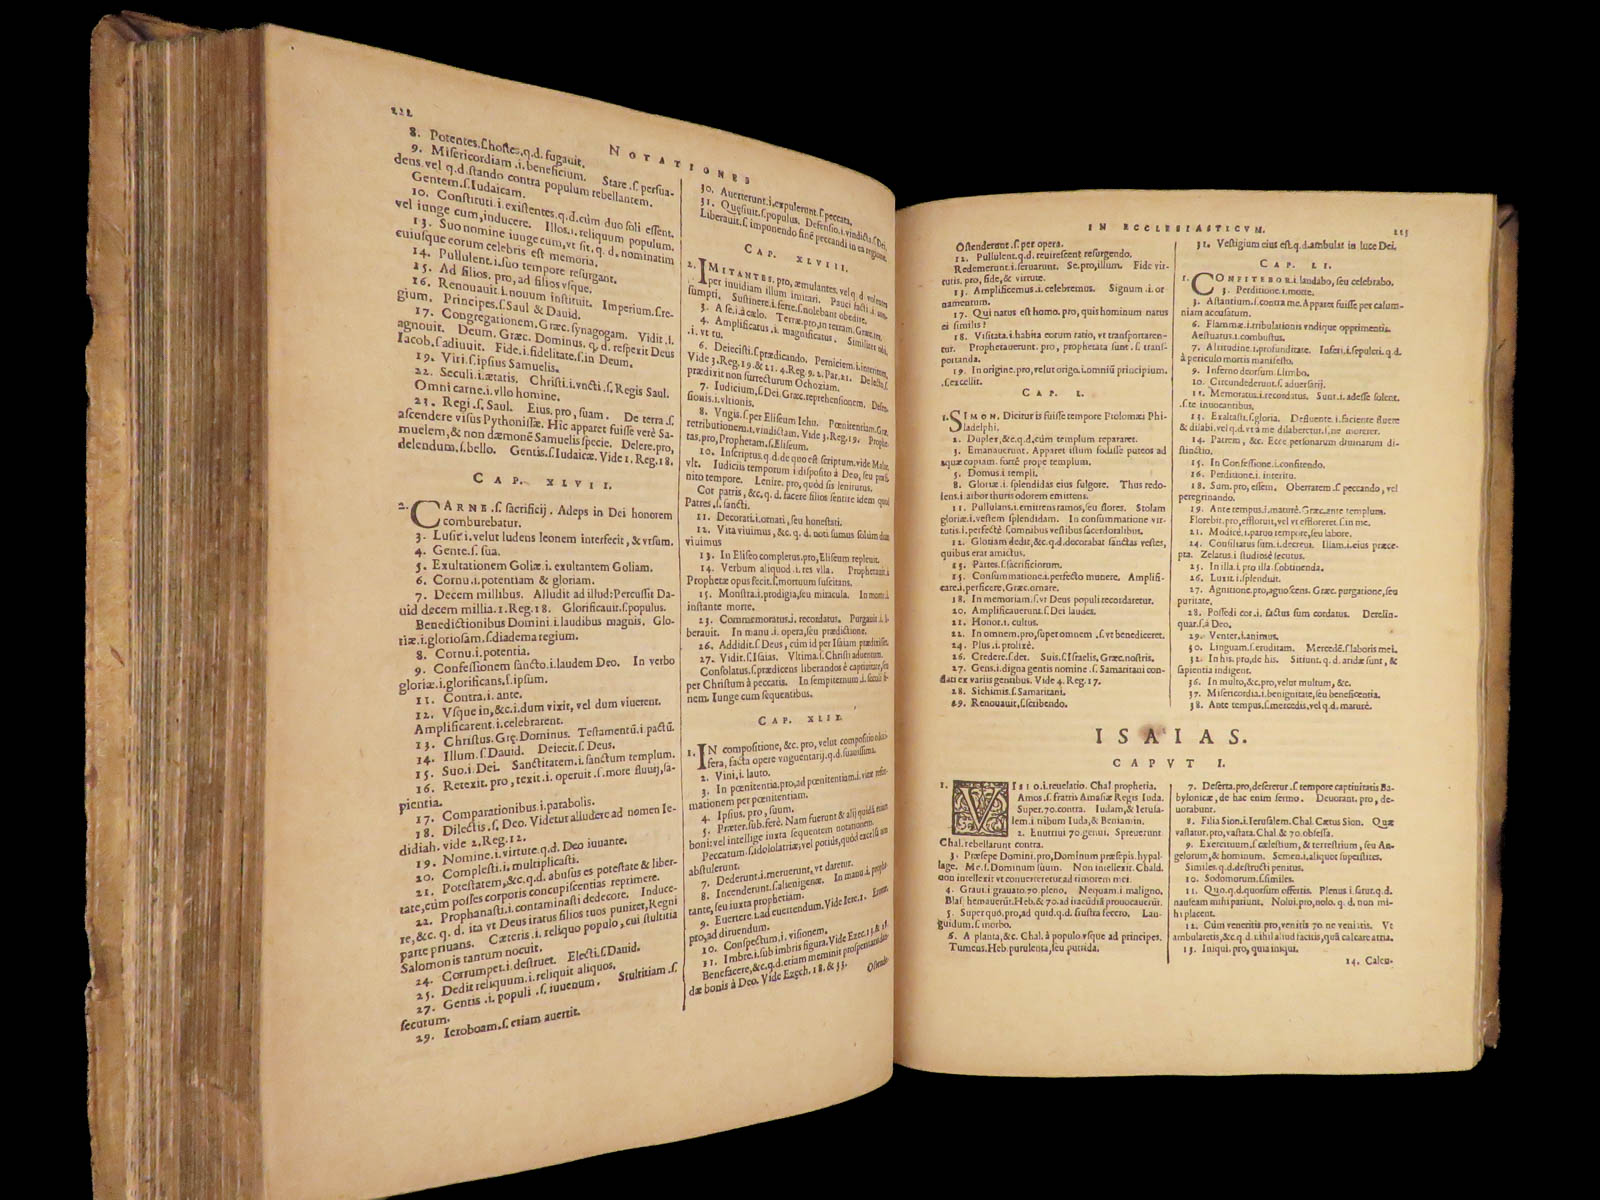 222
NOTATIONES
8. Potentes.ſ.hoſtes,q.d.fugauit.
9. Miſericordiam .i.beneficium. Stare.ſ.perſua-
dens.vel q.d.ſtando contra populum rebellantem.
Gentem.ſ.Iudaicam.
10. Conſtituti.i.exiſtentes.q.d.cùm duo ſoli eſſent.
vel iunge cum,inducere. Illos.i.reliquum populum.
13. Suo nomine iunge cum,vt ſit,q.d.nominatim
cuiuſque eorum celebris eſt memoria.
14. Pullulent.i.ſuo tempore reſurgant.
15. Ad filios, pro,ad filios vſque.
16. Renouauit.i.nouum inſtituit. Imperium.ſ.re-
gium. Principes.ſ.Saul & Dauid.
17. Congregationem.Græc.ſynagogam. Vidit .i.
agnouit. Deum. Græc. Dominus, q. d. reſpexit Deus
Iacob.ſ.adiuuit. Fide.i.fidelitate.ſ.in Deum.
19. Viri.ſ.ipſius Samuelis.
22. Seculi.i.ætatis. Chriſti.i.vncti.ſ.Regis Saul.
Omni carne.i.vllo homine.
23. Regi.ſ.Saul. Eius,pro,ſuam. De terra .ſ.
aſcendere viſus Pythoniſſæ. Hic apparet fuiſſe verè Sa-
muelem,& non dæmonē Samuelis ſpecie. Delere,pro,
delendum.ſ.bello. Gentis.ſ.Iudaicæ.Vide 1.Reg.18.
CAP. XLVII.
2. CARNE.ſ.ſacrificij. Adeps in Dei honorem
comburebatur.
3. Luſit.i.velut ludens leonem interfecit, & vrſum.
4. Gente.ſ.ſua.
5. Exultationem Goliæ.i.exultantem Goliam.
6. Cornu.i.potentiam & gloriam.
7. Decem millibus. Alludit ad illud:Percuſſit Da-
uid decem millia.1.Reg.18. Glorificauit.ſ.populus.
Benedictionibus Domini.i.laudibus magnis. Glo-
riæ.i.glorioſam.ſ.diadema regium.
8. Cornu.i.potentia.
9. Confeſſionem ſancto.i.laudem Deo. In verbo
gloriæ.i.glorificans.ſ.ipſum.
11. Contra.i.ante.
12. Vſque in,&c.i.dum vixit, vel dum viuerent.
Amplificarent.i.celebrarent.
13. Chriſtus.Grę.Dominus. Teſtamentū.i pactū.
14. Illum.ſ.Dauid. Deiecit.ſ.Deus.
15. Suo.i.Dei. Sanctitatem.i.ſanctum templum.
16. Retexit, pro , texit.i. operuit .ſ.more fluuij,ſa-
pientia.
17. Comparationibus.i.parabolis.
18. Dilectis.ſ.Deo. Videtur alludere ad nomen Ie-
didiah. vide 2.Reg.12.
19. Nomine.i.virtute.q.d. Deo iuuante.
20. Compleſti.i. multiplicaſti.
21. Poteſtatem,&c.q.d. abuſus es poteſtate & liber-
tate,cùm poſſes corporis concupiſcentias reprimere.
22. Prophanaſti.i.contaminaſti dedecore. Induce-
re,&c. q. d. ita vt Deus iratus filios tuos puniret,Regni
parte priuans. Cæteris.i.reliquo populo, cui ſtultitia
Salomonis tantum nocuit.
24. Corrumpet.i.deſtruet. Electi.ſ.Dauid.
25. Dedit reliquum.i.reliquit aliquos.
27. Gentis .i. populi .ſ. iuuenum. Stultitiam .ſ.
ſecutum.
29. Ieroboam.ſ. etiam auertit.
30. Auerterunt.i.expulerunt.ſ.peccata.
31. Quęſiuit.ſ.populus. Defenſio.i.vindicta.ſ.Dei.
Liberauit.ſ. imponendo finē peccandi in ea regione.
CAP. XLVIII.
2. IMITANTES, pro, æmulantes, vel q.d volentes
per inuidiam illum imitari. Pauci facti .i.
ſumpti. Suſtinere.i.ferre.ſ.nolebant obedire.
3. A ſe.i.à cælo. Terræ,pro,in terram.Græc.ter.
4. Amplificatus .i. magnificatus. Similiter tibi,
.i. vt tu.
6. Deieciſti.ſ.prædicando. Perniciem.i.interitum.
Vide 3.Reg.19.& 21. 4.Reg 9. 2.Par.21.
prædixit non ſurrecturum Ochoziam.
7. Iudicium.ſ.Dei.Græc.reprehenſionem. Defen-
ſionis.i.vltionis.
8. Vngis.ſ.per Eliſeum Iehu. Pœnitentiam.Græ.
retributionem.i.vindictam. Vide 3.Reg.19. Prophe-
tas,pro,Prophetam.ſ.Eliſeum.
10. Inſcriptus.q.d.de quo eſt ſcriptum.vide Malac.
vlt. Iudiciis temporum i diſpoſito à Deo, ſeu præfi-
nito tempore. Lenire, pro, quòd ſis leniturus.
Cor patris , &c, q. d. facere filios ſentire idem quod
Patres .ſ. ſancti.
11. Decorati.i.ornati , ſeu honeſtati.
12. Vita viuimus , &c. q. d. nos ſumus ſolùm dum
viuimus
13. In Eliſeo completus,pro,Eliſeum repleuit.
14. Verbum aliquod .i. res vlla. Prophetauit.i
Prophetæ opus fecit.ſ.mortuum ſuſcitans.
15. Monſtra.i.prodigia,ſeu miracula. In morte.i.
inſtante morte.
23. Commemoratus.i. recordatus. Purgauit.i.li-
berauit. In manu .i. opera,ſeu prædictione.
26. Addidit.ſ Deus, cùm id per Iſaiam prædixiſſet.
27. Vidit.ſ.Iſaias. Vltima.ſ.Chriſti aduentum.
Conſolatus.ſ.prædicens liberandos è captiuitate,ſeu
per Chriſtum à peccatis. In ſempiternum .i. ſeculi fi-
nem. Iunge cum ſequentibus.
CAP. XLIX.
1. IN compoſitione, &c. pro, velut compoſitio odori-
fera, facta opere vnguentarij.q.d.ſuauiſſima.
2. Vini.i. lauto.
3. In pœnitentia,pro,ad pœnitentiam.i. vitæ refor-
mationem per pœnitentiam.
4. Ipſius, pro , ſuum.
5. Præter.ſub.ferè. Nam fuerunt & alij quidā etiam
boni: vel intellige iuxta ſequentem notationem.
Peccatum.ſ.idololatriæ,vel potius,quòd excelſa non
abſtulerunt.
7. Dederunt.i.meruerunt, vt daretur.
8. Incenderunt.ſ.alienigenæ. In manu .i. prophe-
tante, ſeu iuxta prophetiam.
9. Euertere.i.ad euertendum. Vide Iere.1. Eruere,
pro,ad diruendum.
10. Conſpectum.i. viſionem.
11. Imbre.i.ſub imbris figura. Vide Ezec.13.& 38.
Benefacere,&c.q.d.etiam meminit proſperitatis dan-
dæ bonis à Deo. Vide Ezech. 18. & 33.
Oſtende-
IN ECCLESIASTICVM.
223
Oſtenderunt .ſ. per opera.
12. Pullulent.q.d. reuireſcent reſurgendo.
Redemerunt.i.ſeruarunt. Se,pro,illum. Fide vir-
tutis. pro, fide, & virtute.
13. Amplificemus .i. celebremus. Signum .i. or-
namentum.
17. Qui natus eſt homo. pro, quis hominum natus
ei ſimilis ?
18. Viſitata.i. habita eorum ratio, vt tranſportaren-
tur. Prophetauerunt. pro, prophetata ſunt .ſ. tranſ-
portanda.
19. In origine,pro, velut origo.i.omniū principium.
.ſ.excellit.
CAP. L.
1. SIMON. Dicitur is fuiſſe tempore Ptolomæi Phi-
ladelphi.
2. Duplex, &c. q. d. cùm templum repararet.
3. Emanauerunt. Apparet iſtum fodiſſe puteos ad
aquæ copiam. fortè prope templum.
5. Domus .i. templi.
8. Gloriæ .i. ſplendidas eius fulgore. Thus redo-
lens .i. arbor thuris odorem emittens.
11. Pullulans.i.emittens ramos, ſeu flores. Stolam
gloriæ.i.veſtem ſplendidam. In conſummatione vir-
tutis.i.perfectè ſ.omnibus veſtibus ſacerdotalibus.
12. Gloriam dedit,&c.q.d.decorabat ſanctas veſtes,
quibus erat amictus.
13. Partes.ſ.ſacrificiorum.
15. Conſummatione.i.perfecto munere. Amplifi-
care.i.perficere,Græc.ornare.
18. In memoriam.ſ.vt Deus populi recordaretur.
20. Amplificauerunt.ſ.Dei laudes.
21. Honor .i. cultus.
22. In omnem,pro,ſuper omnem .ſ. vt benediceret.
24. Plus .i. prolixè.
26. Credere.ſ.det. Suis.ſ.Iſraelis, Græc.noſtris.
27. Gens.i.digna gentis nomine .ſ. Samaritani con-
flati ex variis gentibus. Vide 4. Reg. 17.
28. Sichimis.ſ.Samaritani.
29. Renouauit,ſ.ſcribendo.
31. Veſtigium eius eſt.q.d.ambulat in luce Dei.
CAP. LI.
1. CONFITEBOR.i.laudabo, ſeu celebrabo.
3. Perditione.i. morte.
3. Aſtantium.ſ.contra me. Apparet fuiſſe per calum-
niam accuſatum.
6. Flammæ.i.tribulationis vndique opprimentis.
Aeſtuatus.i.combuſtus.
7. Altitudine.i.profunditate. Inferi.i.ſepulcri. q.d.
à periculo mortis manifeſto.
9. Inferno deorſum.ſ.limbo.
10. Circundederunt .ſ. aduerſarij.
11. Memoratus.i.recordatus. Sunt.i.adeſſe ſolent.
.ſ.te inuocantibus.
13. Exaltaſti.ſ.gloria. Defluente .i. faciente fluere
& dilabi, vel q.d.vt à me dilaberetur.i. ne morerer.
14. Patrem, &c. Ecce perſonarum diuinarum di-
ſtinctio.
15. In Confeſſione.i.confitendo.
16. Perditione.i. interitu.
18. Sum.pro, eſſem. Oberrarem .ſ. peccando, vel
peregrinando.
19. Ante tempus.i.maturè. Græc.ante templum.
Florebit.pro,effloruit,vel vt effloreret.ſ.in me.
21. Modicè.i.paruo tempore,ſeu labore.
24. Conſiliatus ſum.i.decreui. Illam.i.eius præce-
pta. Zelatus.i ſtudiosè ſecutus.
25. In illa .i. pro illa .ſ.obtinenda.
26. Luxit.i.ſplenduit.
27. Agnitione,pro,agnoſcens. Græc. purgatione, ſeu
puritate.
28. Poſſedi cor.i. factus ſum cordatus. Derelin-
quar.ſ.à Deo.
29. Venter.i.animus.
30. Linguam.ſ.eruditam. Mercedē.ſ.laboris mei.
32. In his,pro,de his. Sitiunt. q. d. aridæ ſunt , &
ſapientia indigent.
36. In multo,&c.pro,velut multum, &c.
37. Miſericordia.i.benignitate,ſeu beneficentia.
38. Ante tempus.ſ.mercedis,vel q.d. maturè.
ISAIAS.
CAPVT I.
1. VISIO.i.reuelatio. Chal. prophetia.
Amos.ſ. fratris Amaſiæ Regis Iuda.
Super.70.contra. Iudam,& Ieruſa-
lem.i tribum Iuda, & Beniamin.
2. Enutriui 70. genui. Spreuerunt
Chal.rebellarunt contra.
3. Præſepe Domini,pro,Dominum præſepis.hypal-
lage. Me.ſ. Dominum ſuum. Non intellexit. Chald.
non intellexit vt conuerteretur,ad timorem mei.
4. Graui.i.grauato 70.pleno. Nequam .i. maligno.
Blaſphemauerūt.Heb.& 70.ad iracūdiā prouocauerūt.
5. Super quo,pro,ad quid.q.d. fruſtra fecero. Lan-
guidum.ſ. morbo.
6. A planta,&c. Chal. à populo vſque ad principes.
Tumens. Heb. purulenta, ſeu putrida.
7. Deſerta,pro,deſeretur.ſ. tempore captiuitatis Ba-
bylonicæ, de hac enim ſermo. Deuorant. pro, de-
uorabunt.
8. Filia Sion.i.Ieruſalem. Chal. Cætus Sion. Quæ
vaſtatur.pro,vaſtata. Chal. & 70.obſeſſa.
9. Exercituum.ſ.cæleſtium, & terreſtrium , ſeu An-
gelorum,& hominum. Semen.i.aliquot ſuperſtites.
Similes.q.d.deſtructi penitus.
10. Sodomorum.ſ.ſimiles.
11. Quo.q.d.quorſum offertis. Plenus .i. ſatur.q.d.
nauſeam mihi pariunt. Nolui,pro,nolo. q. d. non mi-
hi placent.
12. Cùm veneritis pro, venitis 70 ne veniitis. Vt
ambularetis,&c.q.d. nihil aliud facitis, quā calcare atria.
13. Iniqui, pro, quia iniqui.
14. Calcu-